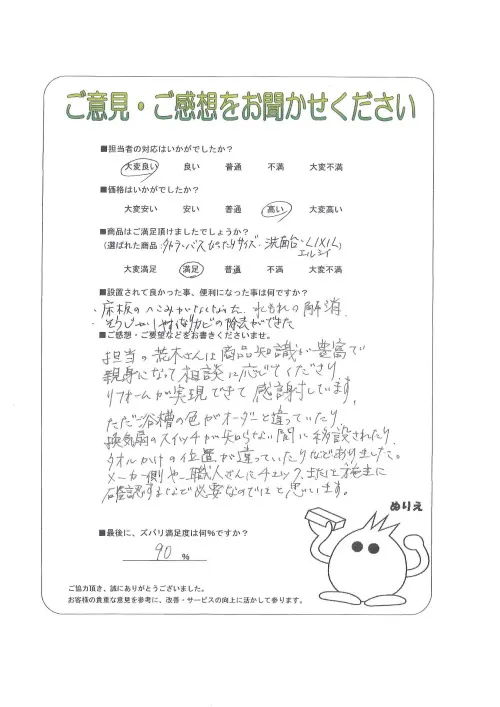 ご意見・ご感想をお聞かせください
■担当者の対応はいかがでしたか？
大変良い 良い 普通 不満 大変不満
■価格はいかがでしたか？
大変安い 安い 普通 高い 大変高い
■商品はご満足頂けましたでしょうか？
(選ばれた商品：タカラ・バスぴったりサイズ・洗面台・LIXIL)
エルシィ
大変満足 満足 普通 不満 大変不満
■設置されて良かった事、便利になった事は何ですか？
・床板のへこみがなくなった、水もれの解消
・そうじがしやすくなりカビの除去ができた
■ご感想・ご要望などをお書きくださいませ。
担当の荒木さんは商品知識が豊富で
親身になって相談に応じてくださり
リフォームが実現できて感謝しています。
ただ浴槽の色がオーダーと違っていたり
換気扇のスイッチが知らない間に移設されたり、
タオルかけの位置が違っていたりなどありました。
メーカー側や職人さんにチェック、
確認するなど必要なのではと思います。
ぬりえ
■最後に、ズバリ満足度は何%ですか？
90 %
ご協力頂き、誠にありがとうございました。
お客様の貴重な意見を参考に、改善・サービスの向上に活かして参ります。